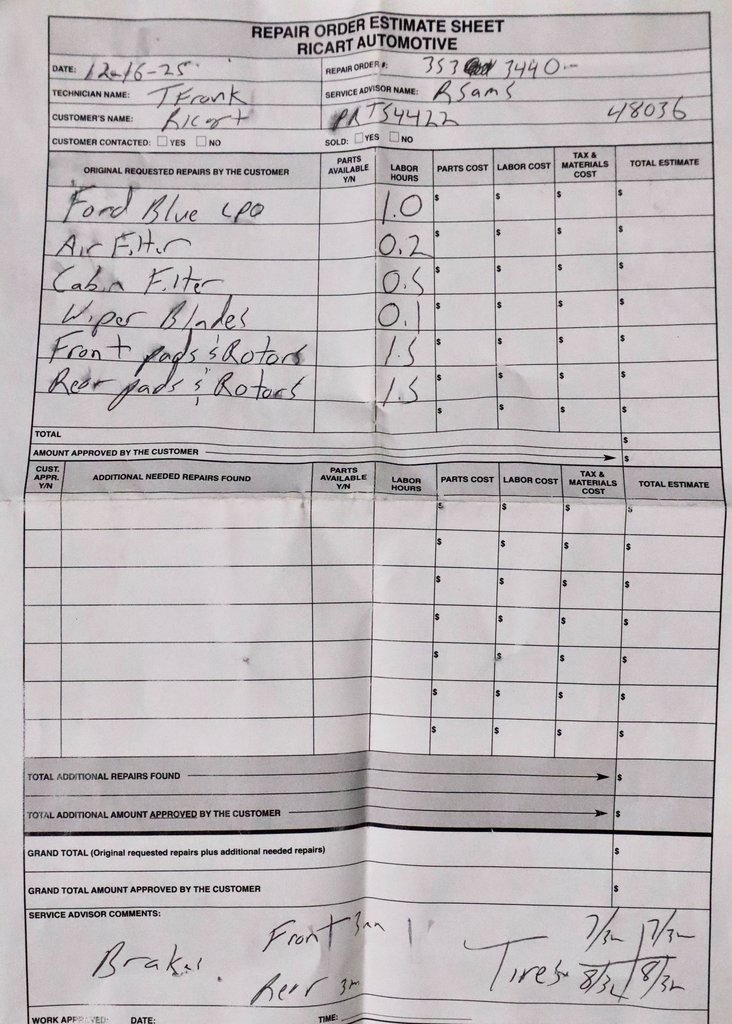 REPAIR ORDER ESTIMATE SHEET
RICART AUTOMOTIVE
DATE: 12-16-25
REPAIR ORDER #: 353 3440
TECHNICIAN NAME: T Frank
SERVICE ADVISOR NAME: R Sams
CUSTOMER'S NAME: Ricart
PRT54422 48036
CUSTOMER CONTACTED: YES NO
SOLD: YES NO
ORIGINAL REQUESTED REPAIRS BY THE CUSTOMER PARTS AVAILABLE Y/N LABOR HOURS PARTS COST LABOR COST TAX & MATERIALS COST TOTAL ESTIMATE
Ford Blue CPO 1.0 $ $ $ $
Air Filter 0.2 $ $ $ $
Cabin Filter 0.5 $ $ $ $
Wiper Blades 0.1 $ $ $ $
Front pads & Rotors 1.5 $ $ $ $
Rear pads & Rotors 1.5 $ $ $ $
$ $ $ $
TOTAL $
AMOUNT APPROVED BY THE CUSTOMER $
CUST. APPR. Y/N ADDITIONAL NEEDED REPAIRS FOUND PARTS AVAILABLE Y/N LABOR HOURS PARTS COST LABOR COST TAX & MATERIALS COST TOTAL ESTIMATE
$ $ $ $
$ $ $ $
$ $ $ $
$ $ $ $
$ $ $ $
$ $ $ $
$ $ $ $
TOTAL ADDITIONAL REPAIRS FOUND $
TOTAL ADDITIONAL AMOUNT APPROVED BY THE CUSTOMER $
GRAND TOTAL (Original requested repairs plus additional needed repairs) $
GRAND TOTAL AMOUNT APPROVED BY THE CUSTOMER $
SERVICE ADVISOR COMMENTS:
Brakes Front 3mm
Rear 3m
Tires 7/32 7/32
8/32 8/32
WORK APPROVED: DATE: TIME: